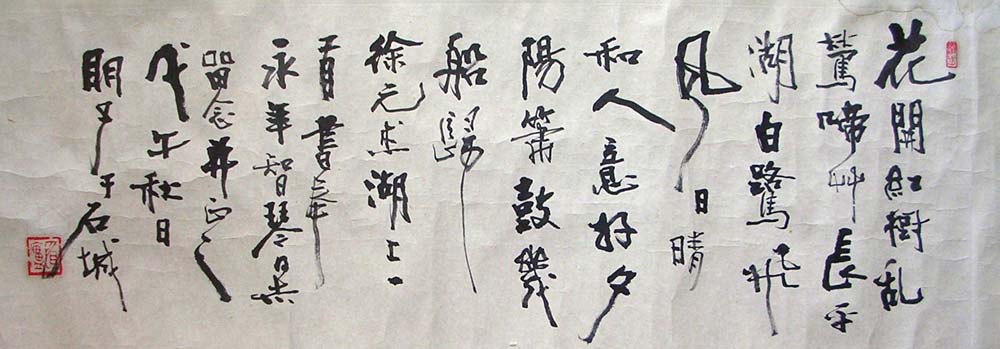 花開紅樹乱
鶯啼艸長平
湖白鷺飛
風日晴
和人意好夕
陽簫鼓幾
船歸
徐元杰湖上一
首書奉
永年智琴
留念並正之
戊午秋日
于石城